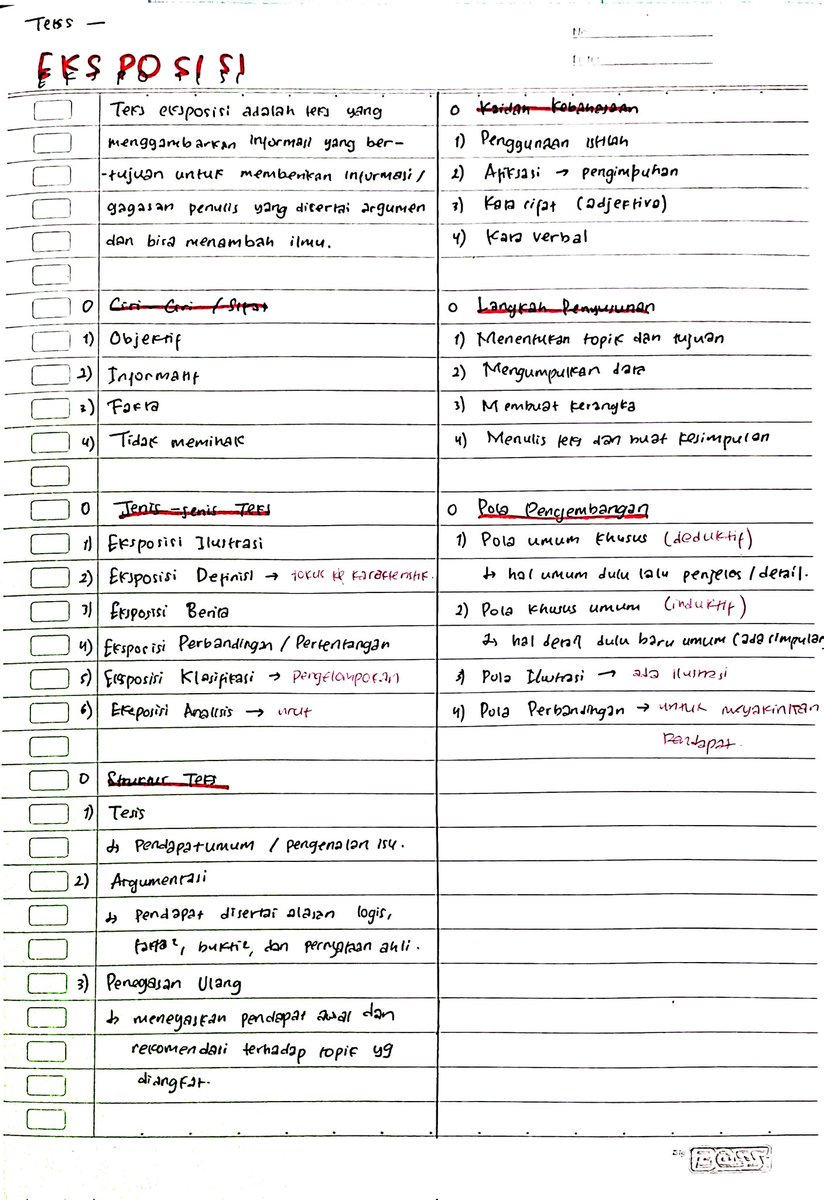 Teks —
EKSPOSISI
No
Date
Teks eksposisi adalah teks yang
menggambarkan informasi yang ber-
-tujuan untuk memberikan informasi/
gagasan penulis yang disertai argumen
dan bisa menambah ilmu.
O Ciri-Ciri / Sifat
1) Objektif
2) Informatif
3) Fakta
4) Tidak memihak
O Jenis-Jenis Teks
1) Eksposisi Ilustrasi
2) Eksposisi Definisi → fokus ke karakteristik.
3) Eksposisi Berita
4) Eksposisi Perbandingan / Pertentangan
5) Eksposisi Klasifikasi → Pengelompokan
6) Eksposisi Analisis → urut
O Struktur Teks
1) Tesis
↳ Pendapat umum / pengenalan isu.
2) Argumentasi
↳ Pendapat disertai alasan logis,
fakta², bukti², dan pernyataan ahli.
3) Penegasan Ulang
↳ menegaskan pendapat awal dan
rekomendasi terhadap topik yg
diangkat.
O Kaidah Kebahasaan
1) Penggunaan istilah
2) Afiksasi → pengimbuhan
3) Kata sifat (adjektiva)
4) Kata verbal
O Langkah Penyusunan
1) Menentukan topik dan tujuan
2) Mengumpulkan data
3) Membuat kerangka
4) Menulis teks dan buat kesimpulan
O Pola Pengembangan
1) Pola umum khusus (deduktif)
↳ hal umum dulu lalu penjelas/detail.
2) Pola khusus umum (induktif)
↳ hal detail dulu baru umum (ada simpulan
3) Pola Ilustrasi → ada ilustrasi
4) Pola Perbandingan → untuk meyakinkan
Pendapat.
BOSS